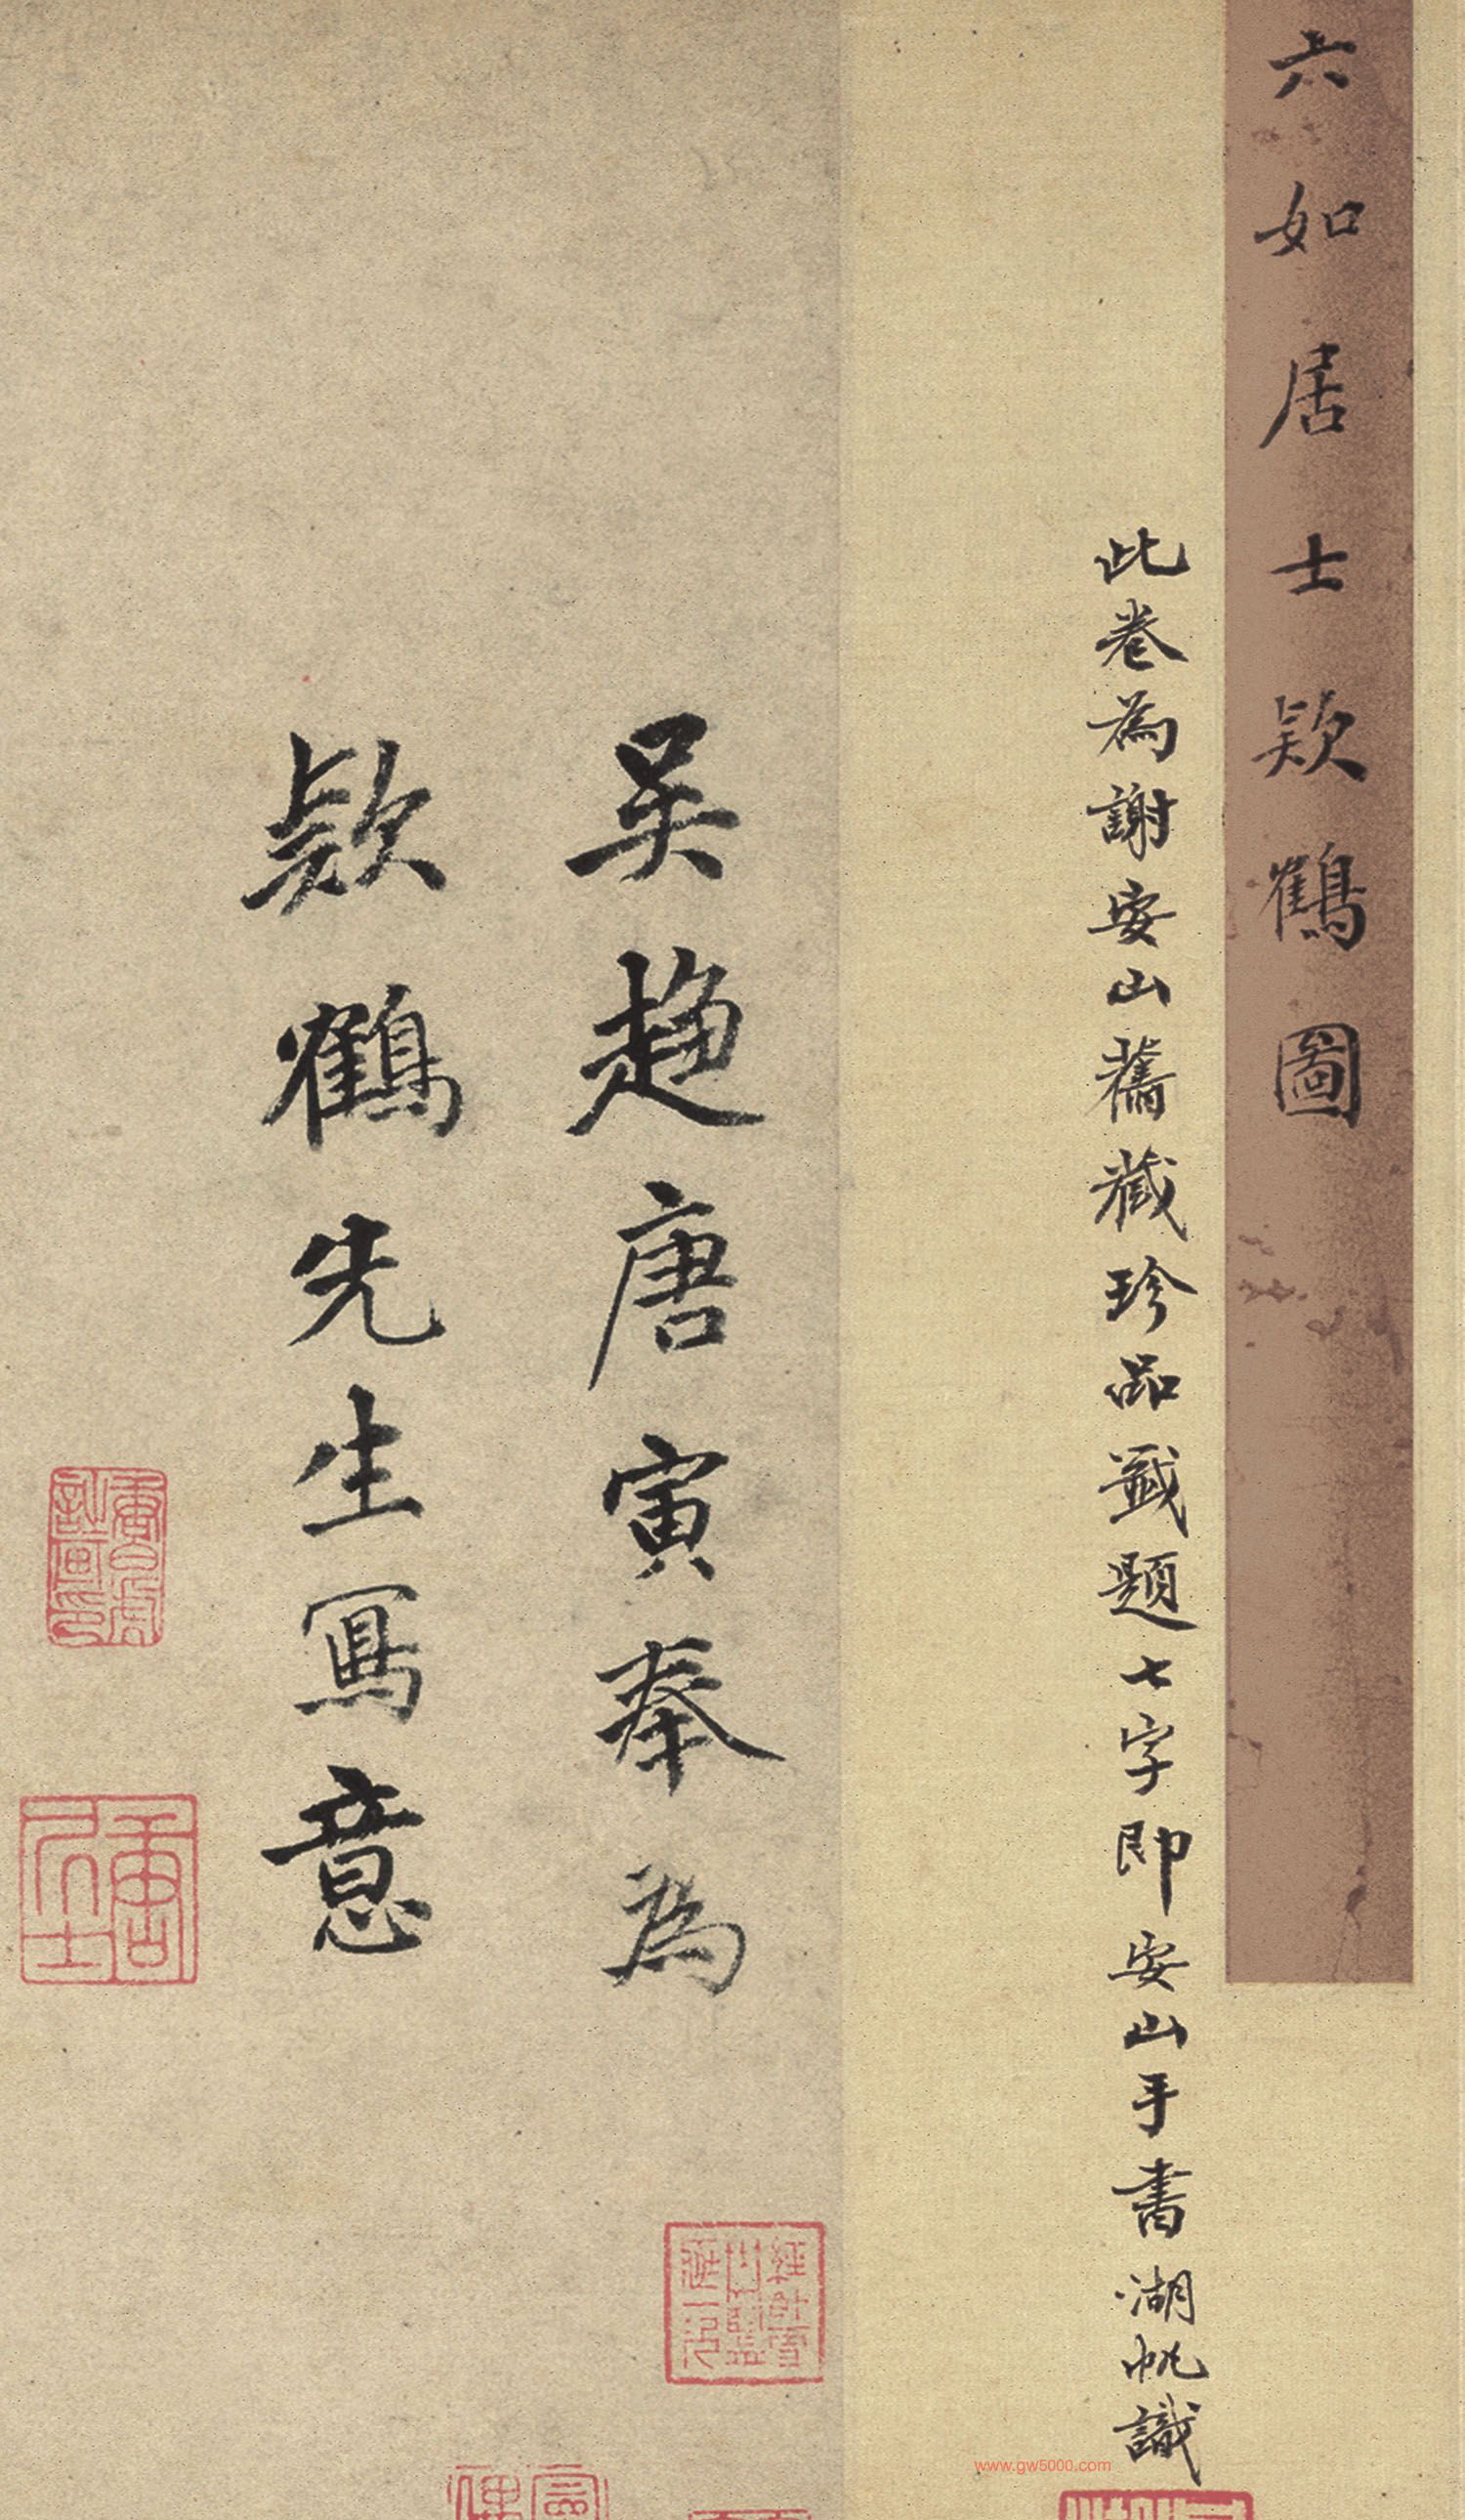 六如居士欵鶴圖
此卷為謝安山舊藏珍品籤題七字即安山手書湖帆識
吴趨唐寅奉為
欵鶴先生寫意
www.gw5000.com